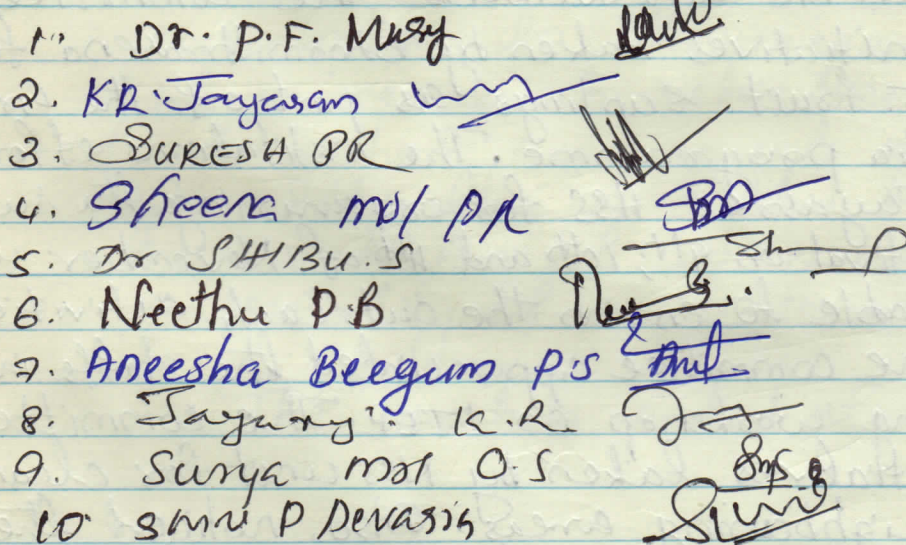 1. Dr. P.F. Mary
2. KR. Jayaram
3. SURESH PR
4. Sheena mol P.R
5. Dr SHIBU.S
6. Neethu P.B
7. Aneesha Beegum P.S
8. K.R.
9. Surya mol O.S
10 P Devasia